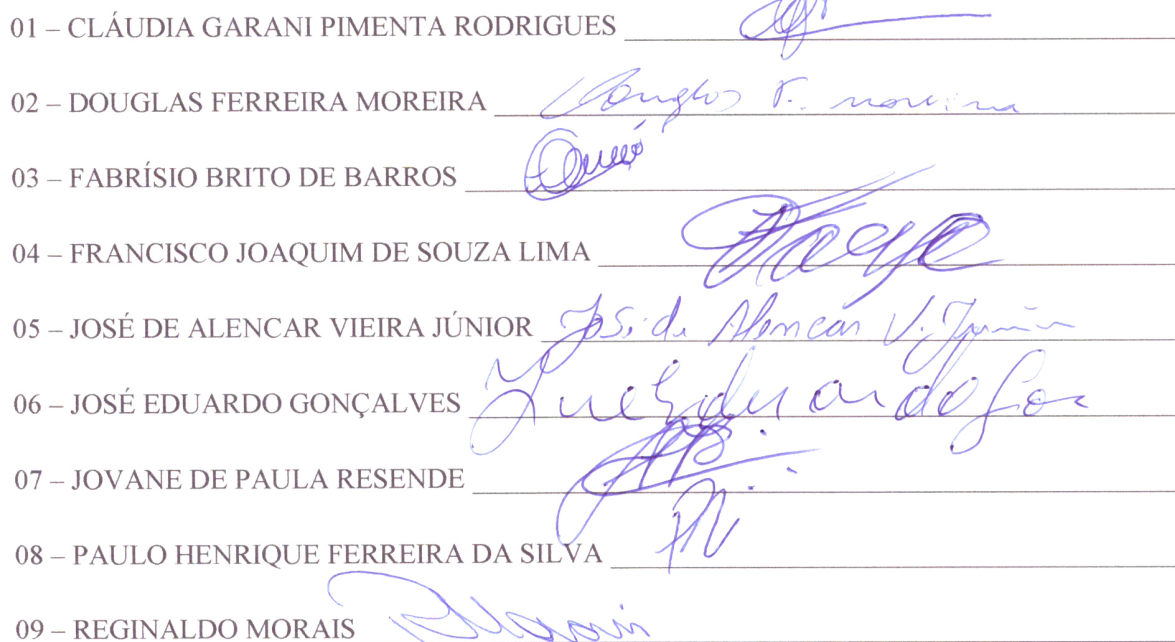 01 – CLÁUDIA GARANI PIMENTA RODRIGUES
02 – DOUGLAS FERREIRA MOREIRA Douglas F. moreira
03 – FABRÍSIO BRITO DE BARROS
04 – FRANCISCO JOAQUIM DE SOUZA LIMA
05 – JOSÉ DE ALENCAR VIEIRA JÚNIOR José de Alencar V. Júnior
06 – JOSÉ EDUARDO GONÇALVES José Eduardo Gon
07 – JOVANE DE PAULA RESENDE
08 – PAULO HENRIQUE FERREIRA DA SILVA
09 – REGINALDO MORAIS RMorais